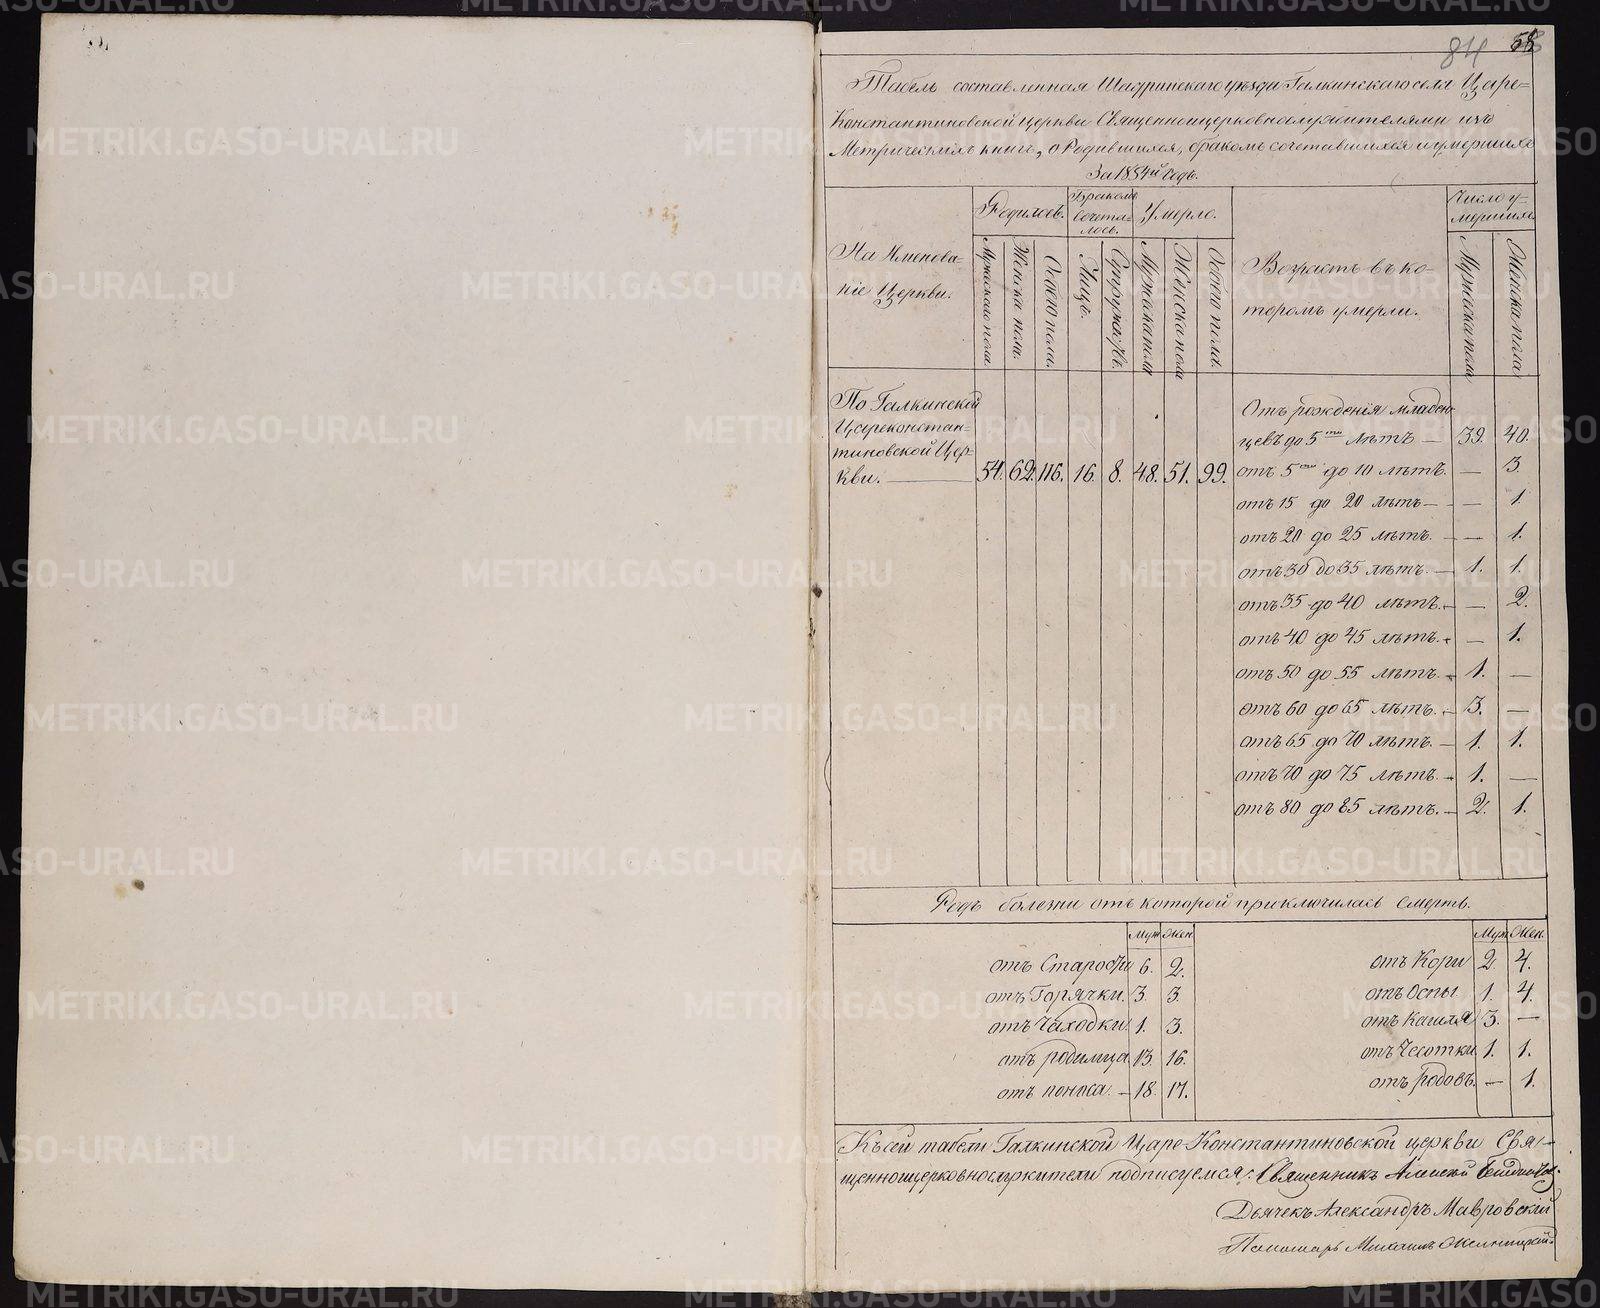 84 58
Табель составленная Шадринскаго уѣзда Галкинскаго села Царе-
Константиновской церкви Священноцерковнослужителями изъ
Метрическихъ книгъ, о Родившихся, бракомъ сочетавшихся и умершихъ
За 1854й Годъ.
На Именова-
ніе Церкви.
Родилось.
Мужескаго пола.
Женска пола.
Обоего пола.
Бракомъ
сочета-
лось.
Лицъ.
Супружествъ.
Умерло.
Мужеска пола
Женска пола
Обоего пола.
Возрастъ въ ко-
торомъ умерли.
Число у-
мершихъ
Мужеска пола
Женска пола
По Галкинской
Цареконстан-
тиновской Цер-
кви. 54. 62. 116. 16. 8. 48. 51. 99.
Отъ рожденія младен-
цевъ до 5ти лѣтъ — 39. 40.
отъ 5ти до 10 лѣтъ. — 3.
отъ 15 до 20 лѣтъ — — 1.
отъ 20 до 25 лѣтъ. — — 1.
отъ 30 до 35 лѣтъ. — 1. 1.
отъ 35 до 40 лѣтъ. — — 2.
отъ 40 до 45 лѣтъ. — — 1.
отъ 50 до 55 лѣтъ. — 1. —
отъ 60 до 65 лѣтъ. — 3. —
отъ 65 до 70 лѣтъ. — 1. 1.
отъ 70 до 75 лѣтъ. — 1. —
отъ 80 до 85 лѣтъ. — 2. 1.
Родъ болезни отъ которой приключилась Смерть.
Муж. Жен.
отъ Старости 6. 2.
отъ Горячки. 3. 3.
отъ Чаходки 1. 3.
отъ родимца 13. 16.
отъ поноса. — 18. 17.
Муж. Жен.
отъ Кори 2. 4.
отъ Оспы 1. 4.
отъ Кашля 3. —
отъ Чесотки 1. 1.
отъ родовъ. — 1.
Къ сей табели Галкинской Царе-Константиновской церкви Свя-
щенноцерковнослужители подписуемся: Священникъ Алексѣй
Дьячекъ Александръ Мавровскій
Пономарь Михаилъ
METRIKI.GASO-URAL.RU